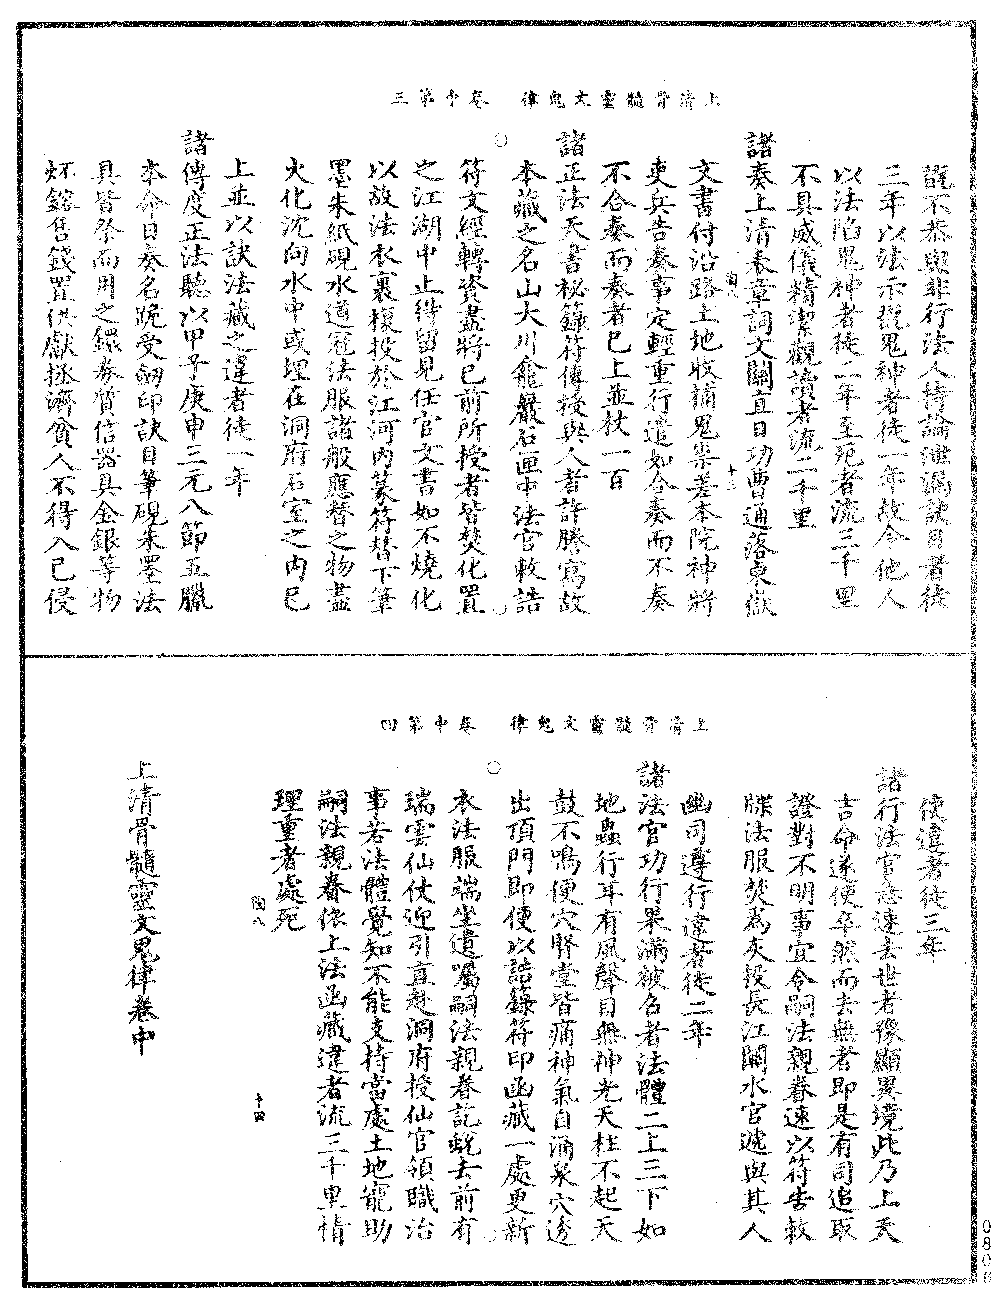 上清骨髓靈文鬼律　卷中第三
翫不恭與非行法人持論泄漏訣目者徒
三年以法示翫鬼神者徒一年故令他人
以法陷鬼神者徒二年至死者流三千里
不具威儀精潔觀讀者流二千里
諸奏上清奏章詞文關直日功曹通落東嶽
文書付沿路土地收捕鬼祟差本院神將
吏兵告奏事定輕重行遣如合奏而不奏
不合奏而奏者已上並杖一百
諸正法天書秘籙符傳授與人者許謄寫故
本藏之名山大川龕巖石匣中法官敕誥
符文經轉資盡將已前所授者皆焚化置
之江湖中止得留見任官文書如不燒化
以故法衣裹複投於江河內篆符替下筆
墨朱紙硯水道冠法服諸般應替之物盡
火化沈向水中或埋在洞府石室之內已
上並以訣法藏之違者徒一年
諸傳度正法聽以甲子庚申三元八節五臘
本命日奏名跪受劒印訣目筆硯朱墨法
具皆祭而用之鐶券質信器具金銀等物
坏鎔售錢置供獻拯濟貧人不得入己侵
陶八
十三
上清骨髓靈文鬼律　卷中第四
使違者徒三年
諸行法官急速去世者豫顯異境此乃上天
吉命遂使卒然而去無者即是有司追取
證對不明事宜令嗣法親眷速以符告敕
牒法服焚為灰投長江關水官遞與其人
幽司遵行違者徒二年
諸法官功行果滿被召者法體二上三下如
地蟲行耳有風聲目無神光天柱不起天
鼓不鳴便穴腎堂皆痛神氣自涌泉穴透
出頂門即便以誥籙符印函藏一處更新
衣法服端坐遺囑嗣法親眷訖蛻去前有
瑞雲仙仗迎引直赴洞府授仙官領職治
事若法體覺知不能支持當處土地竈助
嗣法親眷依上法函藏違者流三千里情
理重者處死
陶八
十四
上清骨髓靈文鬼律卷中